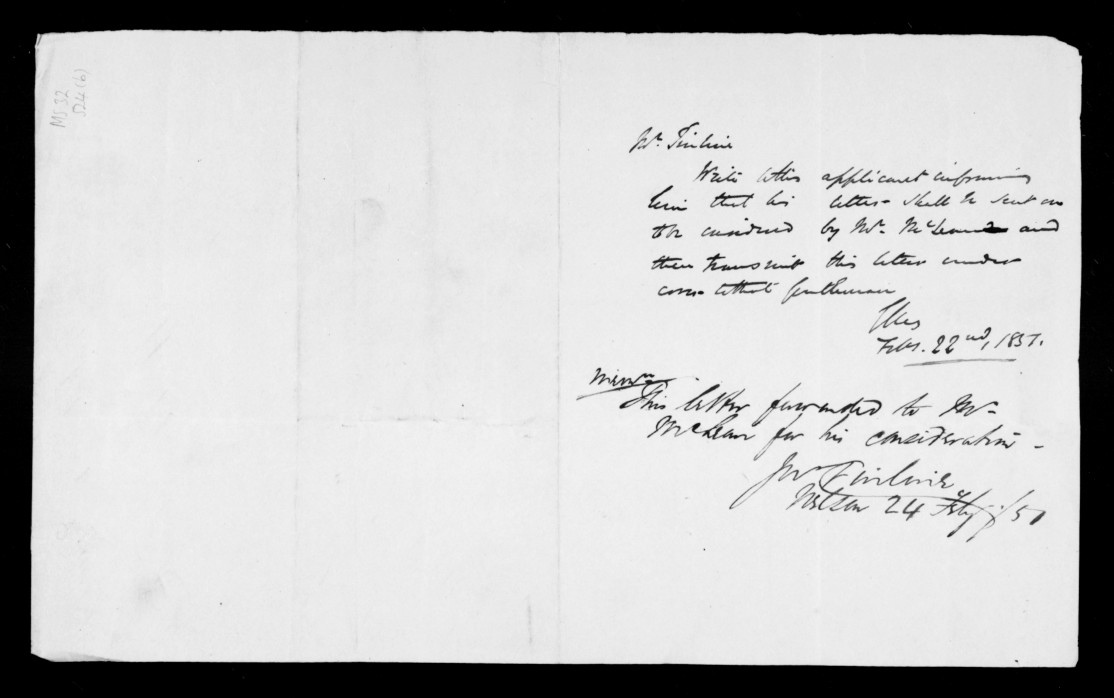 MS 32
S24(6)
Mr. Tinline
Write to this applicant informing
him that his letter shall be sent on
to be considered by Mr. McLean and
then transmit this letter under
cover to that gentleman
Feby. 22nd, 1851.
Memn
This letter forwarded to Mr
McLean for his consideration -
Jno Tinline
Nelson 24 Feby /51